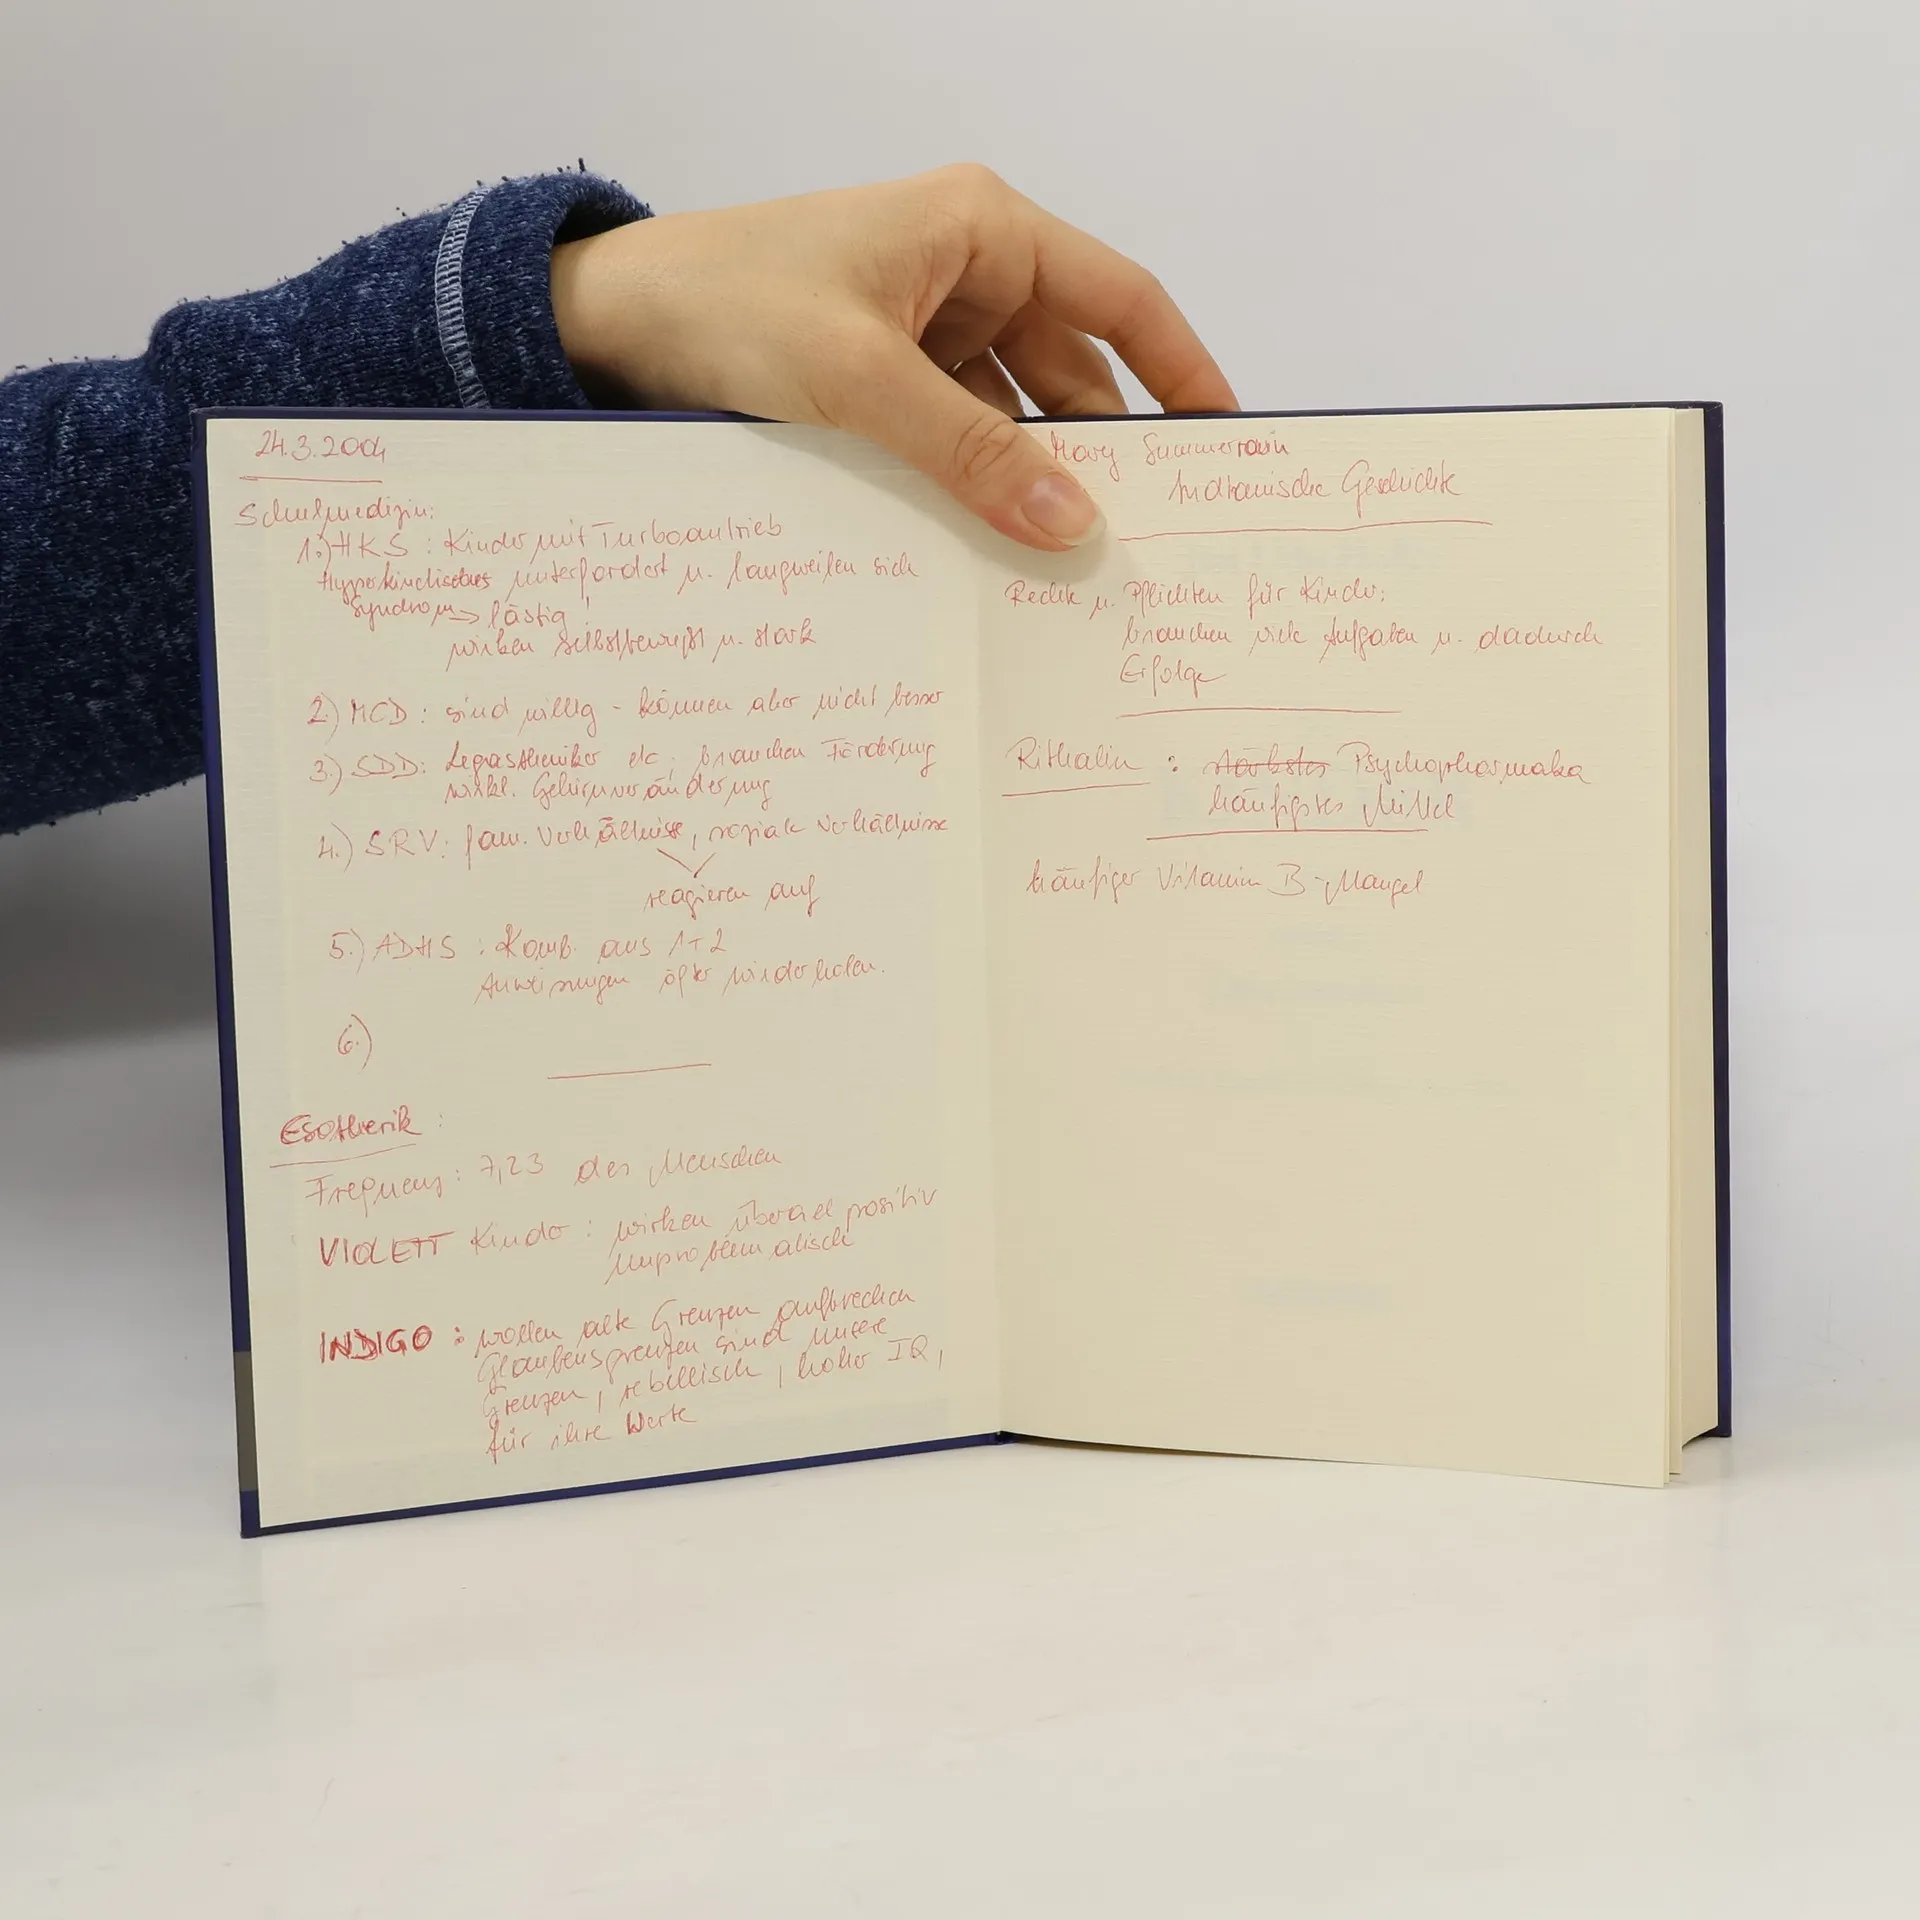 24.3.2004
Schulmedizin:
1.) HKS : Kinder mit Turboantrieb
Hyperkinetisches unterfordert u. langweilen sich
Syndrom → lästig !
wirken selbstbewußt u. stark
2.) MCD : sind willig - können aber nicht besser
3.) SDD : Legastheniker etc. brauchen Förderung
wirkl. Gehirnveränderung
4.) SRV : fam. Verhältnisse, soziale Verhältnisse
reagieren auf
5.) ADHS : Komb. aus 1+2
Anweisungen öfter wiederholen.
6.)
Esotherik :
Frequenz : 7,23 des Menschen
VIOLETT Kinder : wirken überall positiv
unproblematisch
INDIGO : wollen alte Grenzen aufbrechen
Glaubensgrenzen sind unsere
Grenzen, rebellisch, hoher IQ,
für ihre Werte
Mary Summerrain
Indianische Geschichte
Rechte u. Pflichten für Kinder:
brauchen viele Aufgaben u. dadurch
Erfolge
Rithalin : stärkstes Psychopharmaka
häufigstes Mittel
häufiger Vitamin B-Mangel